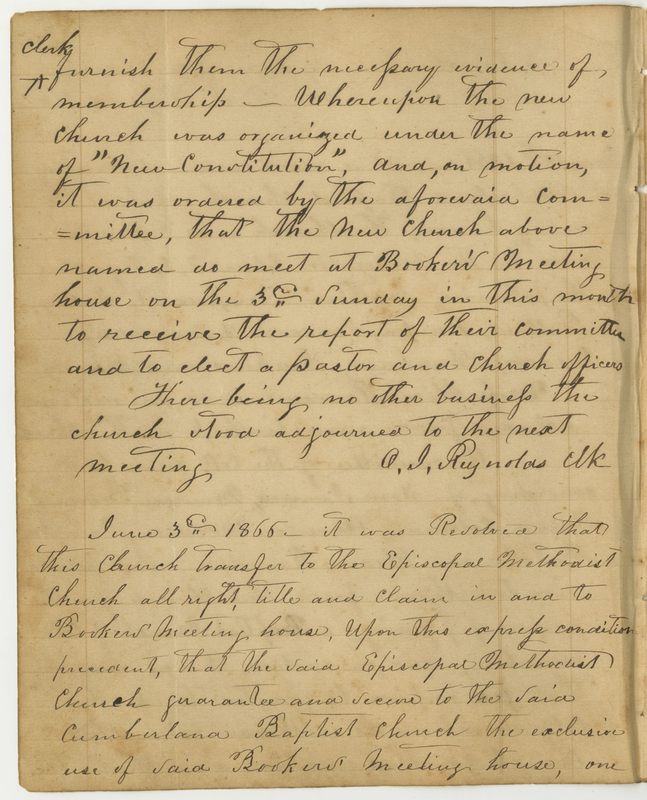 clerk
^ furnish them the necessary evidence of
membership — Whereupon the new
church was organized under the name
of "New Constitution", and, on motion,
it was ordered by the aforesaid com=
=mittee, that the New Church above
named do meet at Booker's Meeting
house on the 3rd Sunday in this month
to receive the report of their committee
and to elect a pastor and church officers
There being no other business the
church stood adjourned to the next
meeting O. I. Reynolds Clk
June 3rd 1866 — it was Resolved that
this Church transfer to the Episcopal Methodist
Church all right, title and claim in and to
Bookers Meeting house, Upon this express condition
precedent, that the said Episcopal Methodist
Church guarantee and secure to the said
Cumberland Baptist Church the exclusive
use of said Bookers Meeting house, one